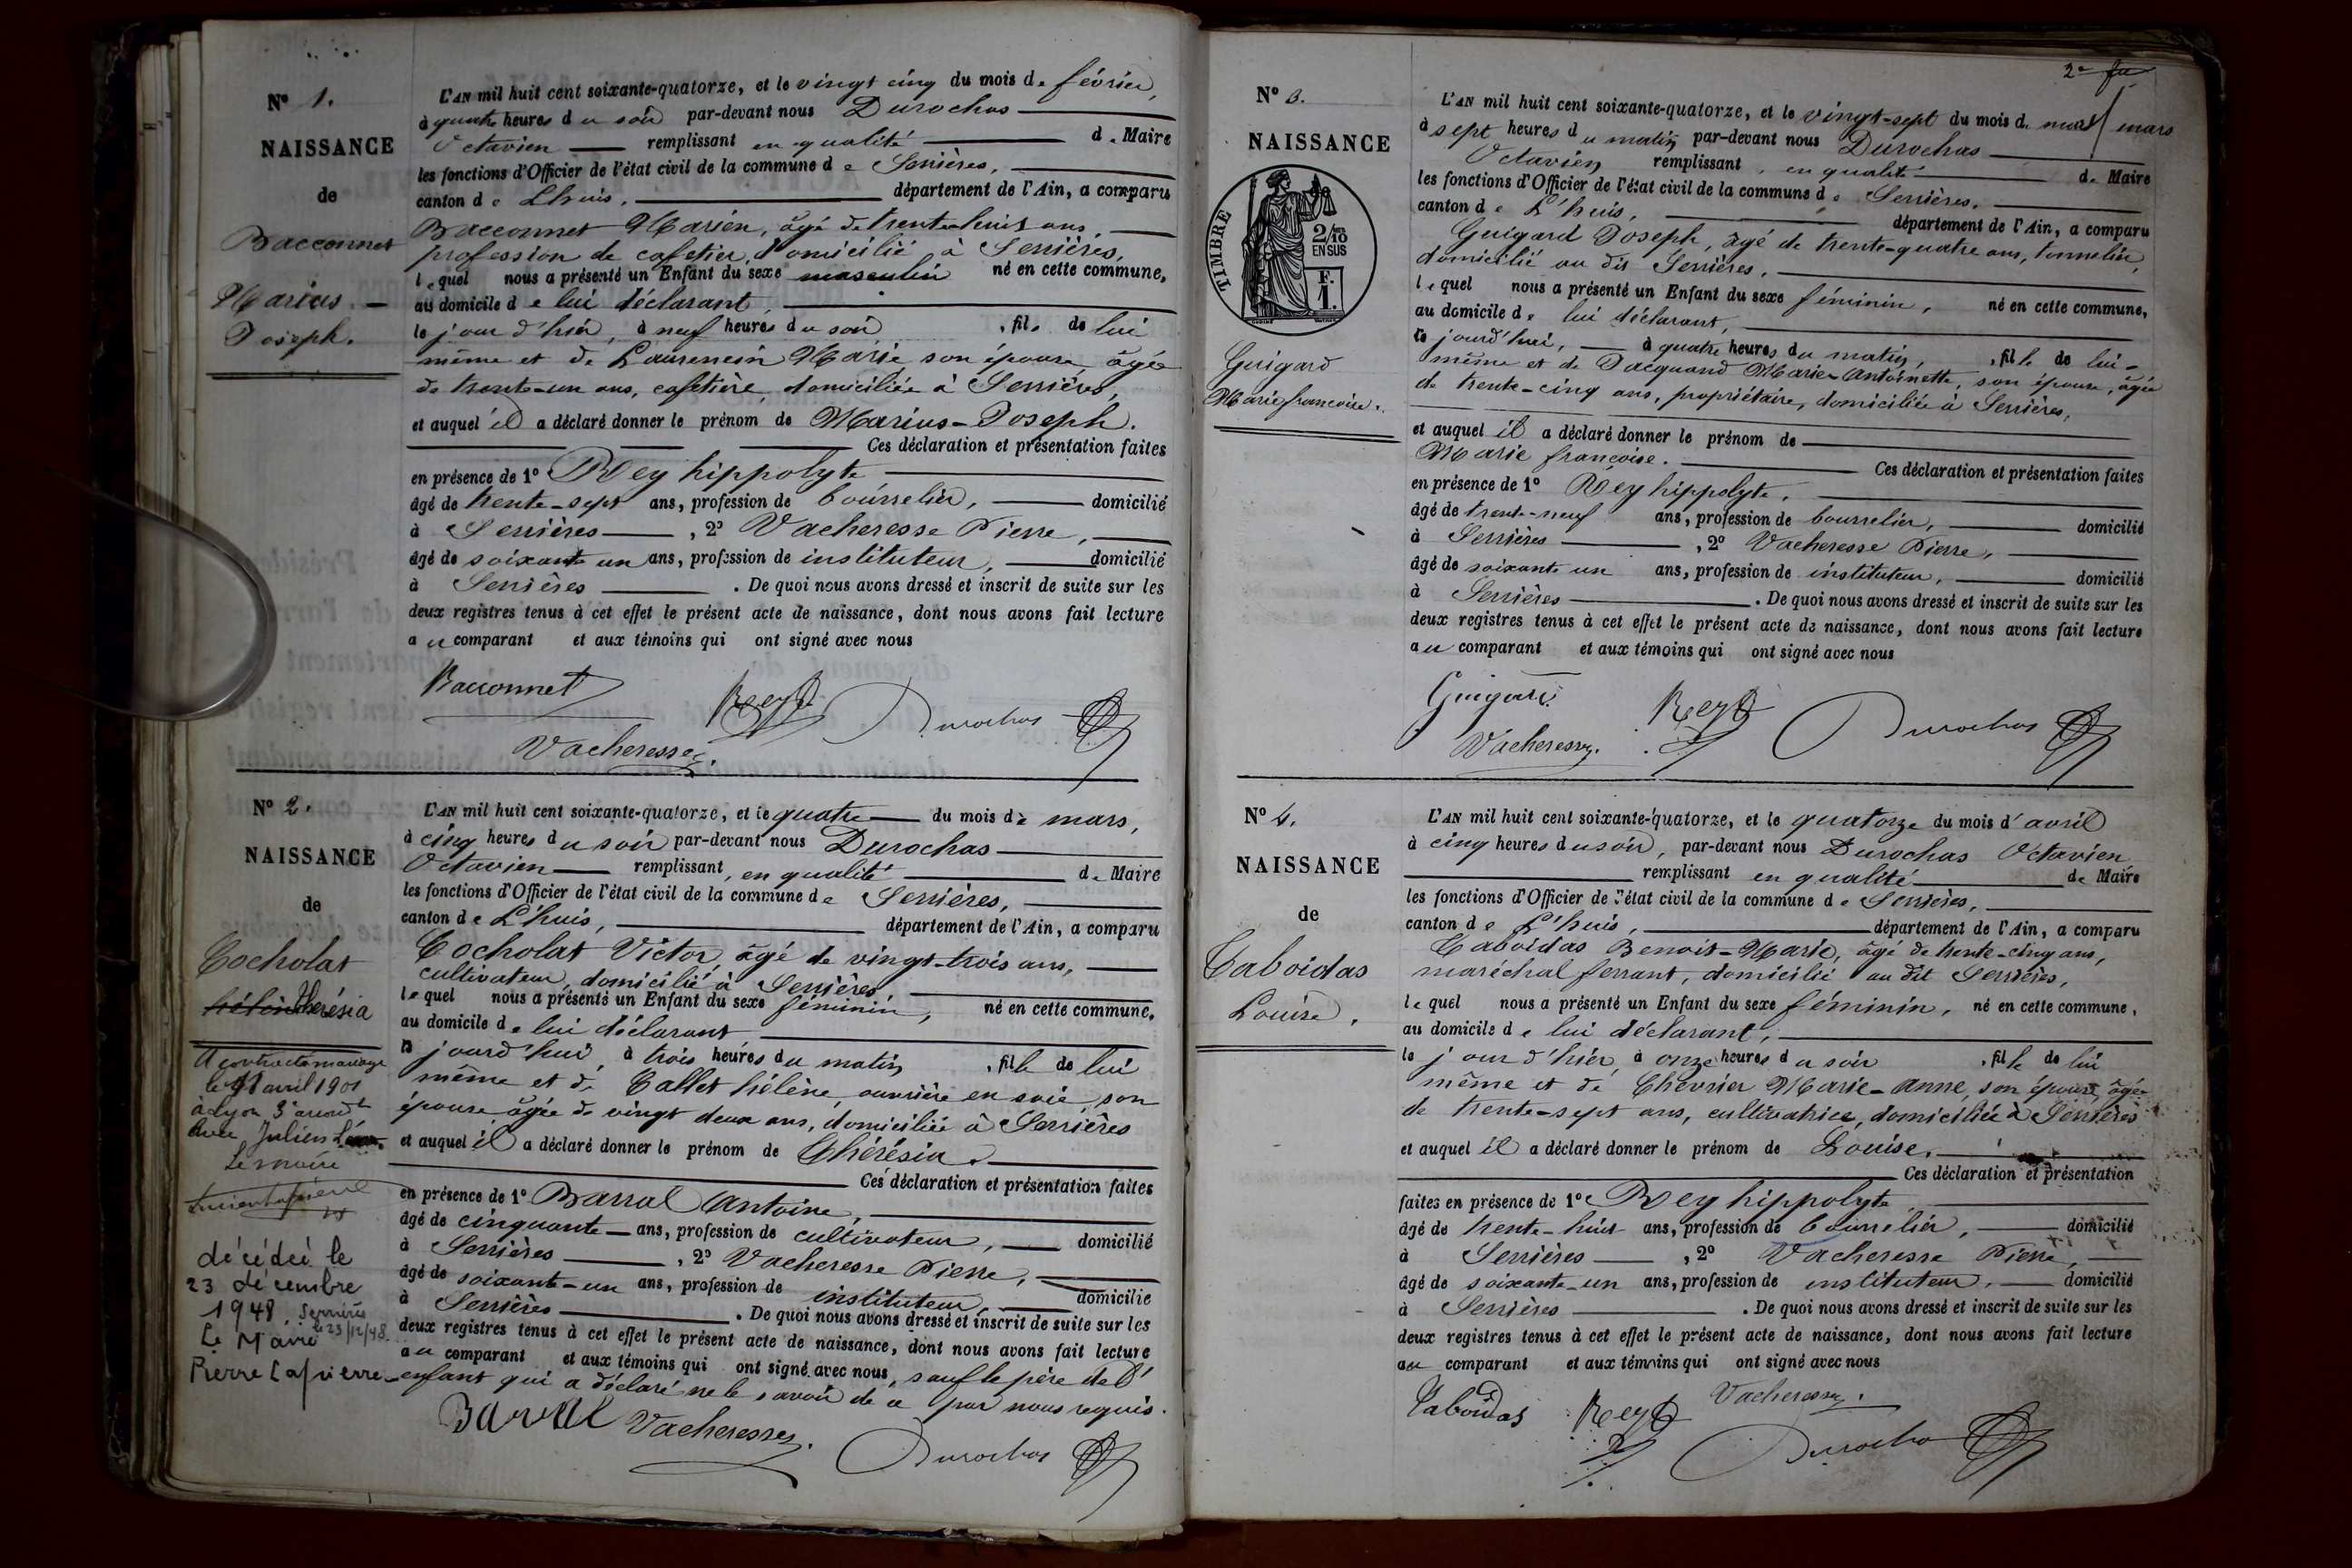 N° 1.
NAISSANCE
de
Bacconnet
Marius
Joseph.
L'AN mil huit cent soixante-quatorze, et le vingt cinq du mois de février,
à quatre heures du soir par-devant nous Durochas
Octavien remplissant en qualité de Maire
les fonctions d'Officier de l'état civil de la commune de Serrières,
canton de Lhuis, département de l'Ain, a comparu
Bacconnet Marien, âgé de trente-huit ans,
profession de cafetier, domicilié à Serrières,
lequel nous a présenté un Enfant du sexe masculin né en cette commune,
au domicile de lui déclarant,
le jour d'hier, à neuf heures du soir, fils de lui
même et de Laurencin Marie son épouse, âgée
de trente-un ans, cafetière, domiciliée à Serrières,
et auquel il a déclaré donner le prénom de Marius-Joseph.
Ces déclaration et présentation faites
en présence de 1° Rey hippolyte
âgé de trente-sept ans, profession de bourrelier, domicilié
à Serrières, 2° Vacheresse Pierre,
âgé de soixante un ans, profession de instituteur, domicilié
à Serrières. De quoi nous avons dressé et inscrit de suite sur les
deux registres tenus à cet effet le présent acte de naissance, dont nous avons fait lecture
au comparant et aux témoins qui ont signé avec nous
Bacconnet Rey Durochas
Vacheresse
N° 2.
NAISSANCE
de
Cocholat
Thérésia
A contracté mariage
le avril 1901
à Lyon 3e arrondt
avec Julien
Lemaire
décédée le
23 décembre
1948, Serrières
le 23/12/48.
Le Maire
Pierre Lapierre
L'AN mil huit cent soixante-quatorze, et le quatre du mois de mars,
à cinq heures du soir par-devant nous Durochas
Octavien remplissant, en qualité de Maire
les fonctions d'Officier de l'état civil de la commune de Serrières,
canton de L'huis, département de l'Ain, a comparu
Cocholat Victor, âgé de vingt-trois ans,
cultivateur, domicilié à Serrières
lequel nous a présenté un Enfant du sexe féminin, né en cette commune,
au domicile de lui déclarant
le jourd'hui, à trois heures du matin, fille de lui
même et de Callet hélène, ouvrière en soie, son
épouse âgée de vingt deux ans, domiciliée à Serrières
et auquel il a déclaré donner le prénom de Thérésia.
Ces déclaration et présentation faites
en présence de 1° Barral Antoine,
âgé de cinquante ans, profession de cultivateur, domicilié
à Serrières, 2° Vacheresse Pierre,
âgé de soixante-un ans, profession de instituteur, domicilié
à Serrières. De quoi nous avons dressé et inscrit de suite sur les
deux registres tenus à cet effet le présent acte de naissance, dont nous avons fait lecture
au comparant et aux témoins qui ont signé avec nous, sauf le père de l'
enfant qui a déclaré ne le savoir de ce par nous requis.
Barral Vacheresse
Durochas
2e
N° 3.
NAISSANCE
TIMBRE
2/10
EN SUS
F.
1.
Guigard
Marie françoise.
L'AN mil huit cent soixante-quatorze, et le vingt-sept du mois de mars / mars
à sept heures du matin, par-devant nous Durochas
Octavien remplissant, en qualité de Maire
les fonctions d'Officier de l'état civil de la commune de Serrières.
canton de L'huis, département de l'Ain, a comparu
Guigard Joseph, âgé de trente-quatre ans, tonnelier,
domicilié au dit Serrières,
lequel nous a présenté un Enfant du sexe féminin, né en cette commune,
au domicile de lui déclarant,
le jourd'hui, à quatre heures du matin, fille de lui-
même et de Jacquand Marie-Antoinette, son épouse, âgée
de trente-cinq ans, propriétaire, domiciliée à Serrières,
et auquel il a déclaré donner le prénom de
Marie françoise. Ces déclaration et présentation faites
en présence de 1° Rey hippolyte,
âgé de trente-neuf ans, profession de bourrelier, domicilié
à Serrières, 2° Vacheresse Pierre,
âgé de soixante un ans, profession de instituteur, domicilié
à Serrières. De quoi nous avons dressé et inscrit de suite sur les
deux registres tenus à cet effet le présent acte de naissance, dont nous avons fait lecture
au comparant et aux témoins qui ont signé avec nous
Guigard Rey Durochas
Vacheresse
N° 4.
NAISSANCE
de
Caboidas
Louise,
L'AN mil huit cent soixante-quatorze, et le quatorze du mois d'avril
à cinq heures du soir, par-devant nous Durochas Octavien
remplissant en qualité de Maire
les fonctions d'Officier de l'état civil de la commune de Serrières,
canton de L'huis, département de l'Ain, a comparu
Caboidas Benoit-Marie, âgé de trente-cinq ans,
maréchal ferrant, domicilié au dit Serrières,
lequel nous a présenté un Enfant du sexe féminin, né en cette commune,
au domicile de lui déclarant,
le jour d'hier, à onze heures du soir, fille de lui
même et de Chevrier Marie-Anne, son épouse, âgée
de trente-sept ans, cultivatrice, domiciliée à Serrières
et auquel il a déclaré donner le prénom de Louise.
Ces déclaration et présentation
faites en présence de 1° Rey hippolyte,
âgé de trente-huit ans, profession de bourrelier, domicilié
à Serrières, 2° Vacheresse Pierre,
âgé de soixante-un ans, profession de instituteur, domicilié
à Serrières. De quoi nous avons dressé et inscrit de suite sur les
deux registres tenus à cet effet le présent acte de naissance, dont nous avons fait lecture
au comparant et aux témoins qui ont signé avec nous
Caboidas Rey Vacheresse
Durochas